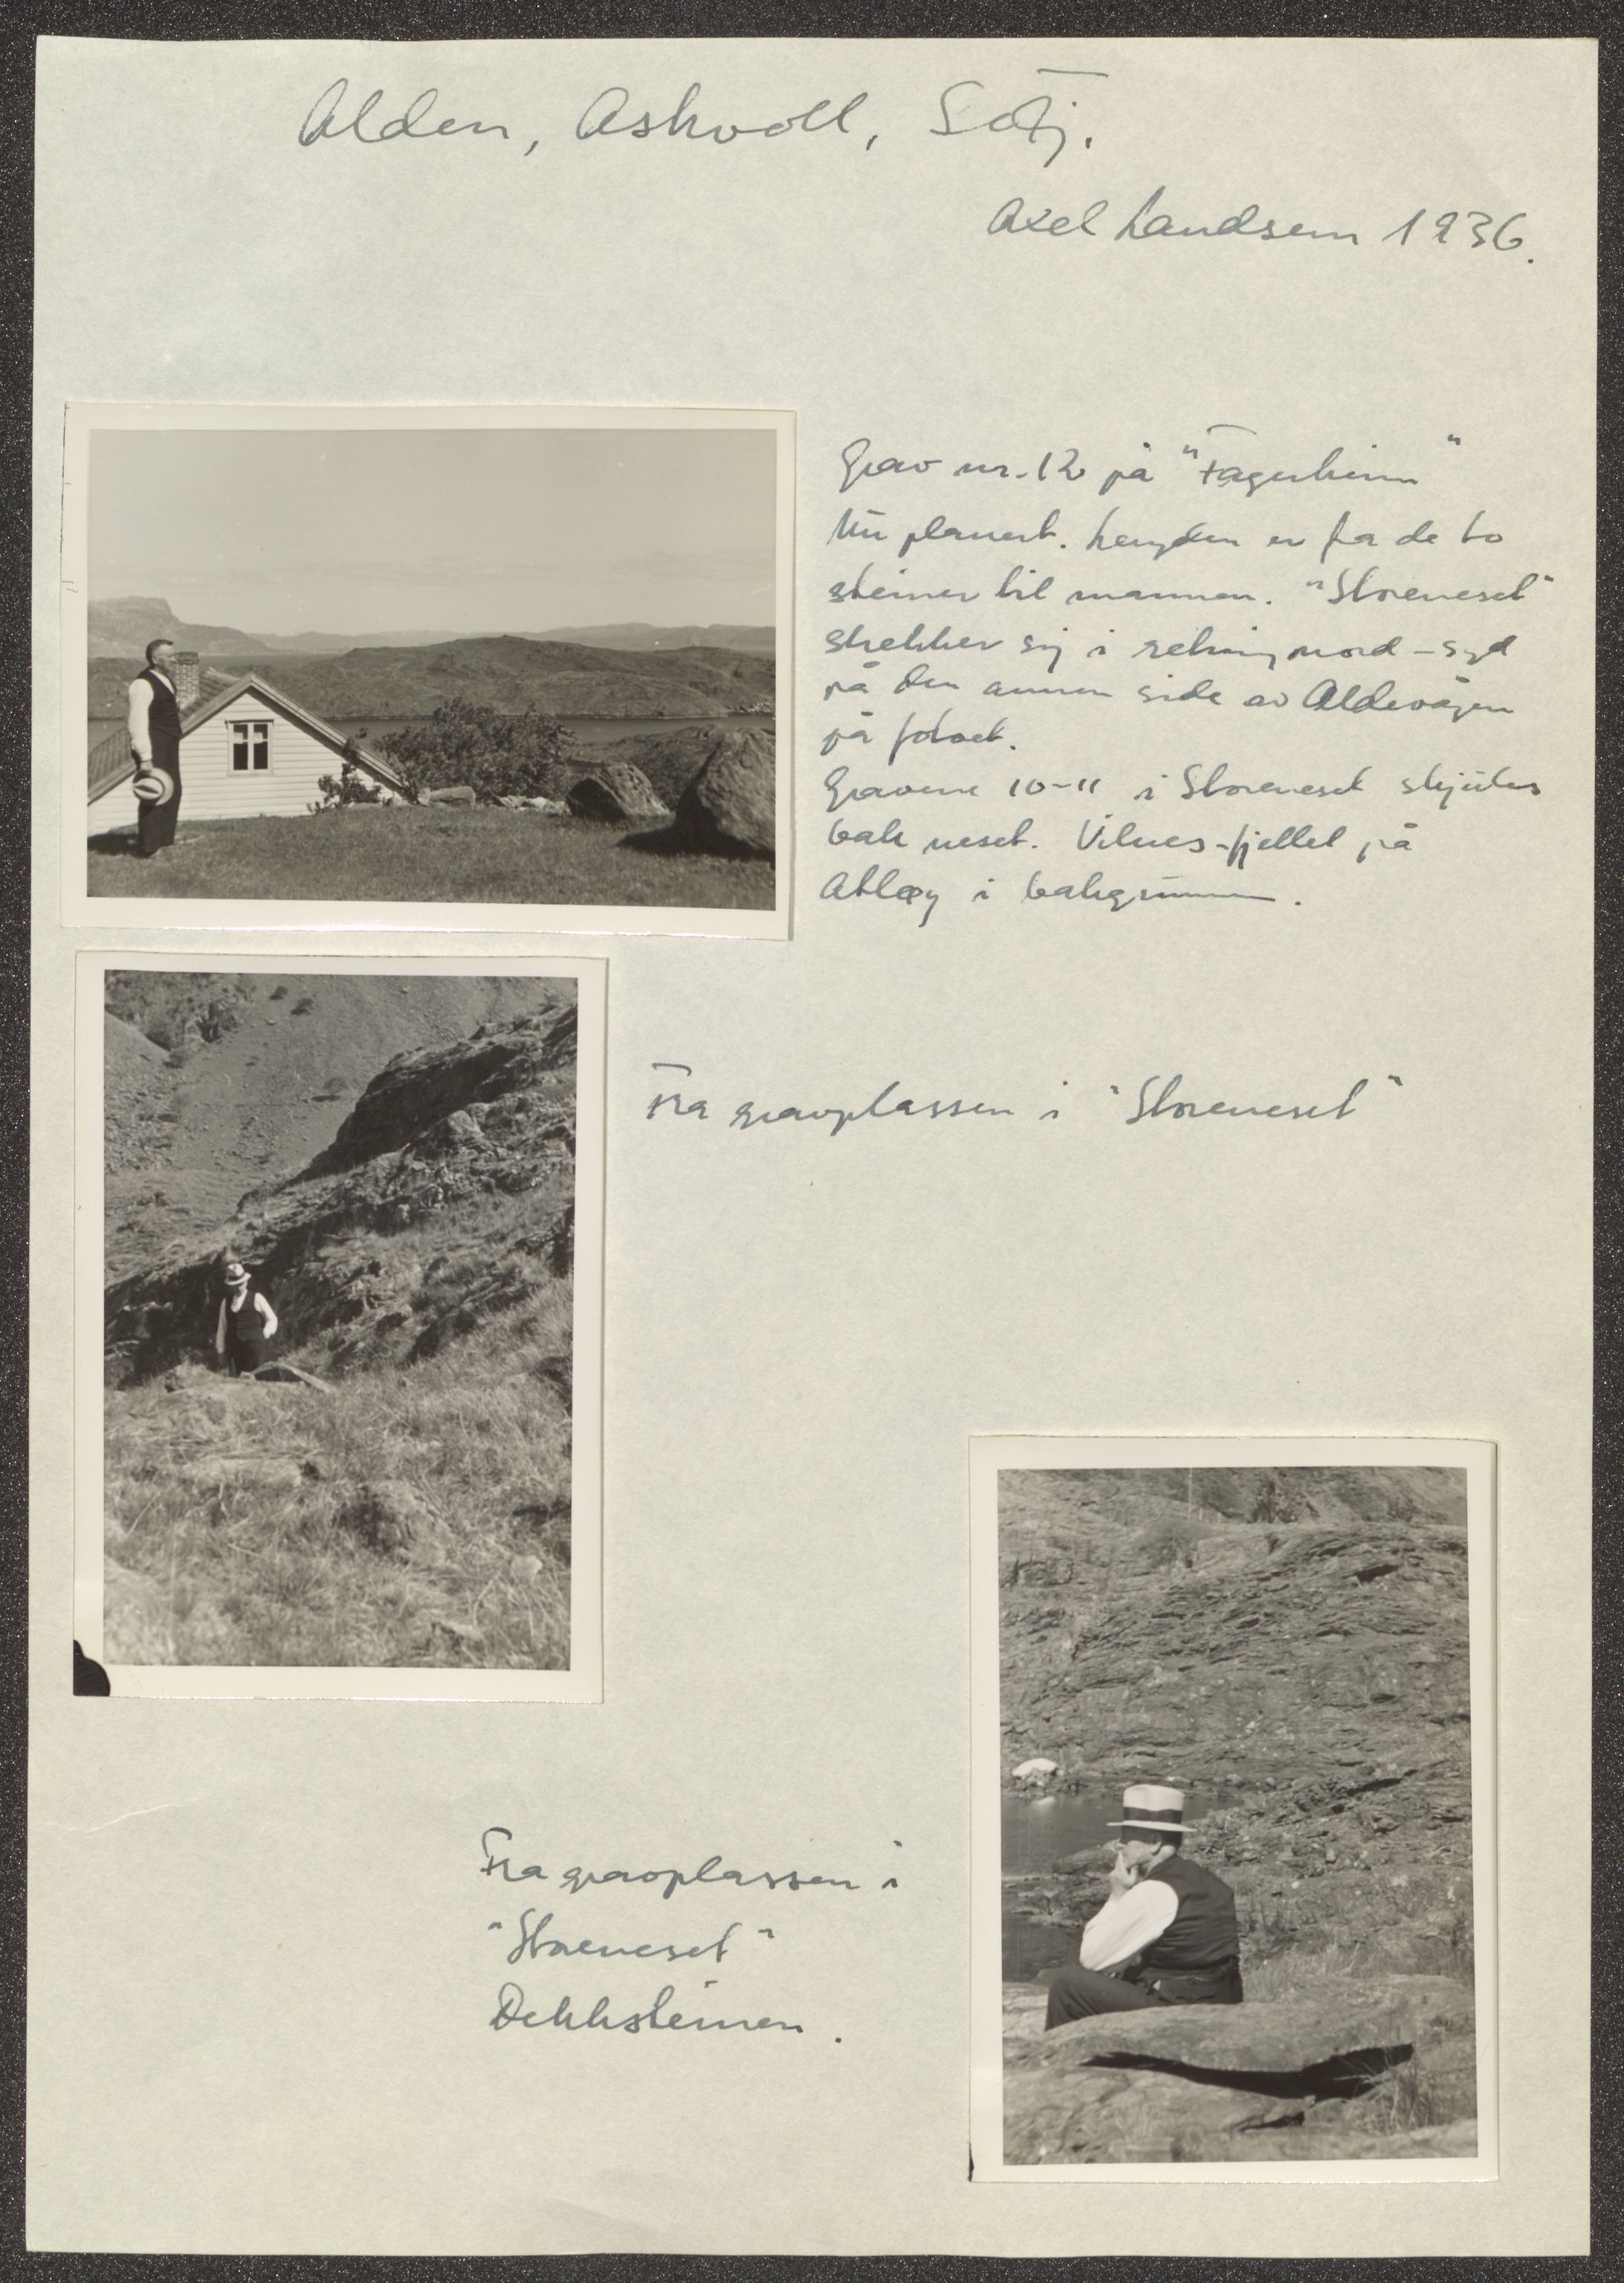 Alden, Askvoll, S&Fj.
Axel Landsem 1936.
Grav nr. 12 på "Fagerheim"
Nu planert. Lengden er fra de to
steiner til mannen. "Storeneset"
strekker sig i retning nord-syd
på den annen side av Aldevågen
på fotoet.
Gravene 10-11 i Storeneset skjules
bak neset. Vilnes-fjellet på
Atløy i bakgrunnen.
Fra gravplassen i "Storeneset"
Fra gravplassen i
"Storeneset"
Dekksteinen.